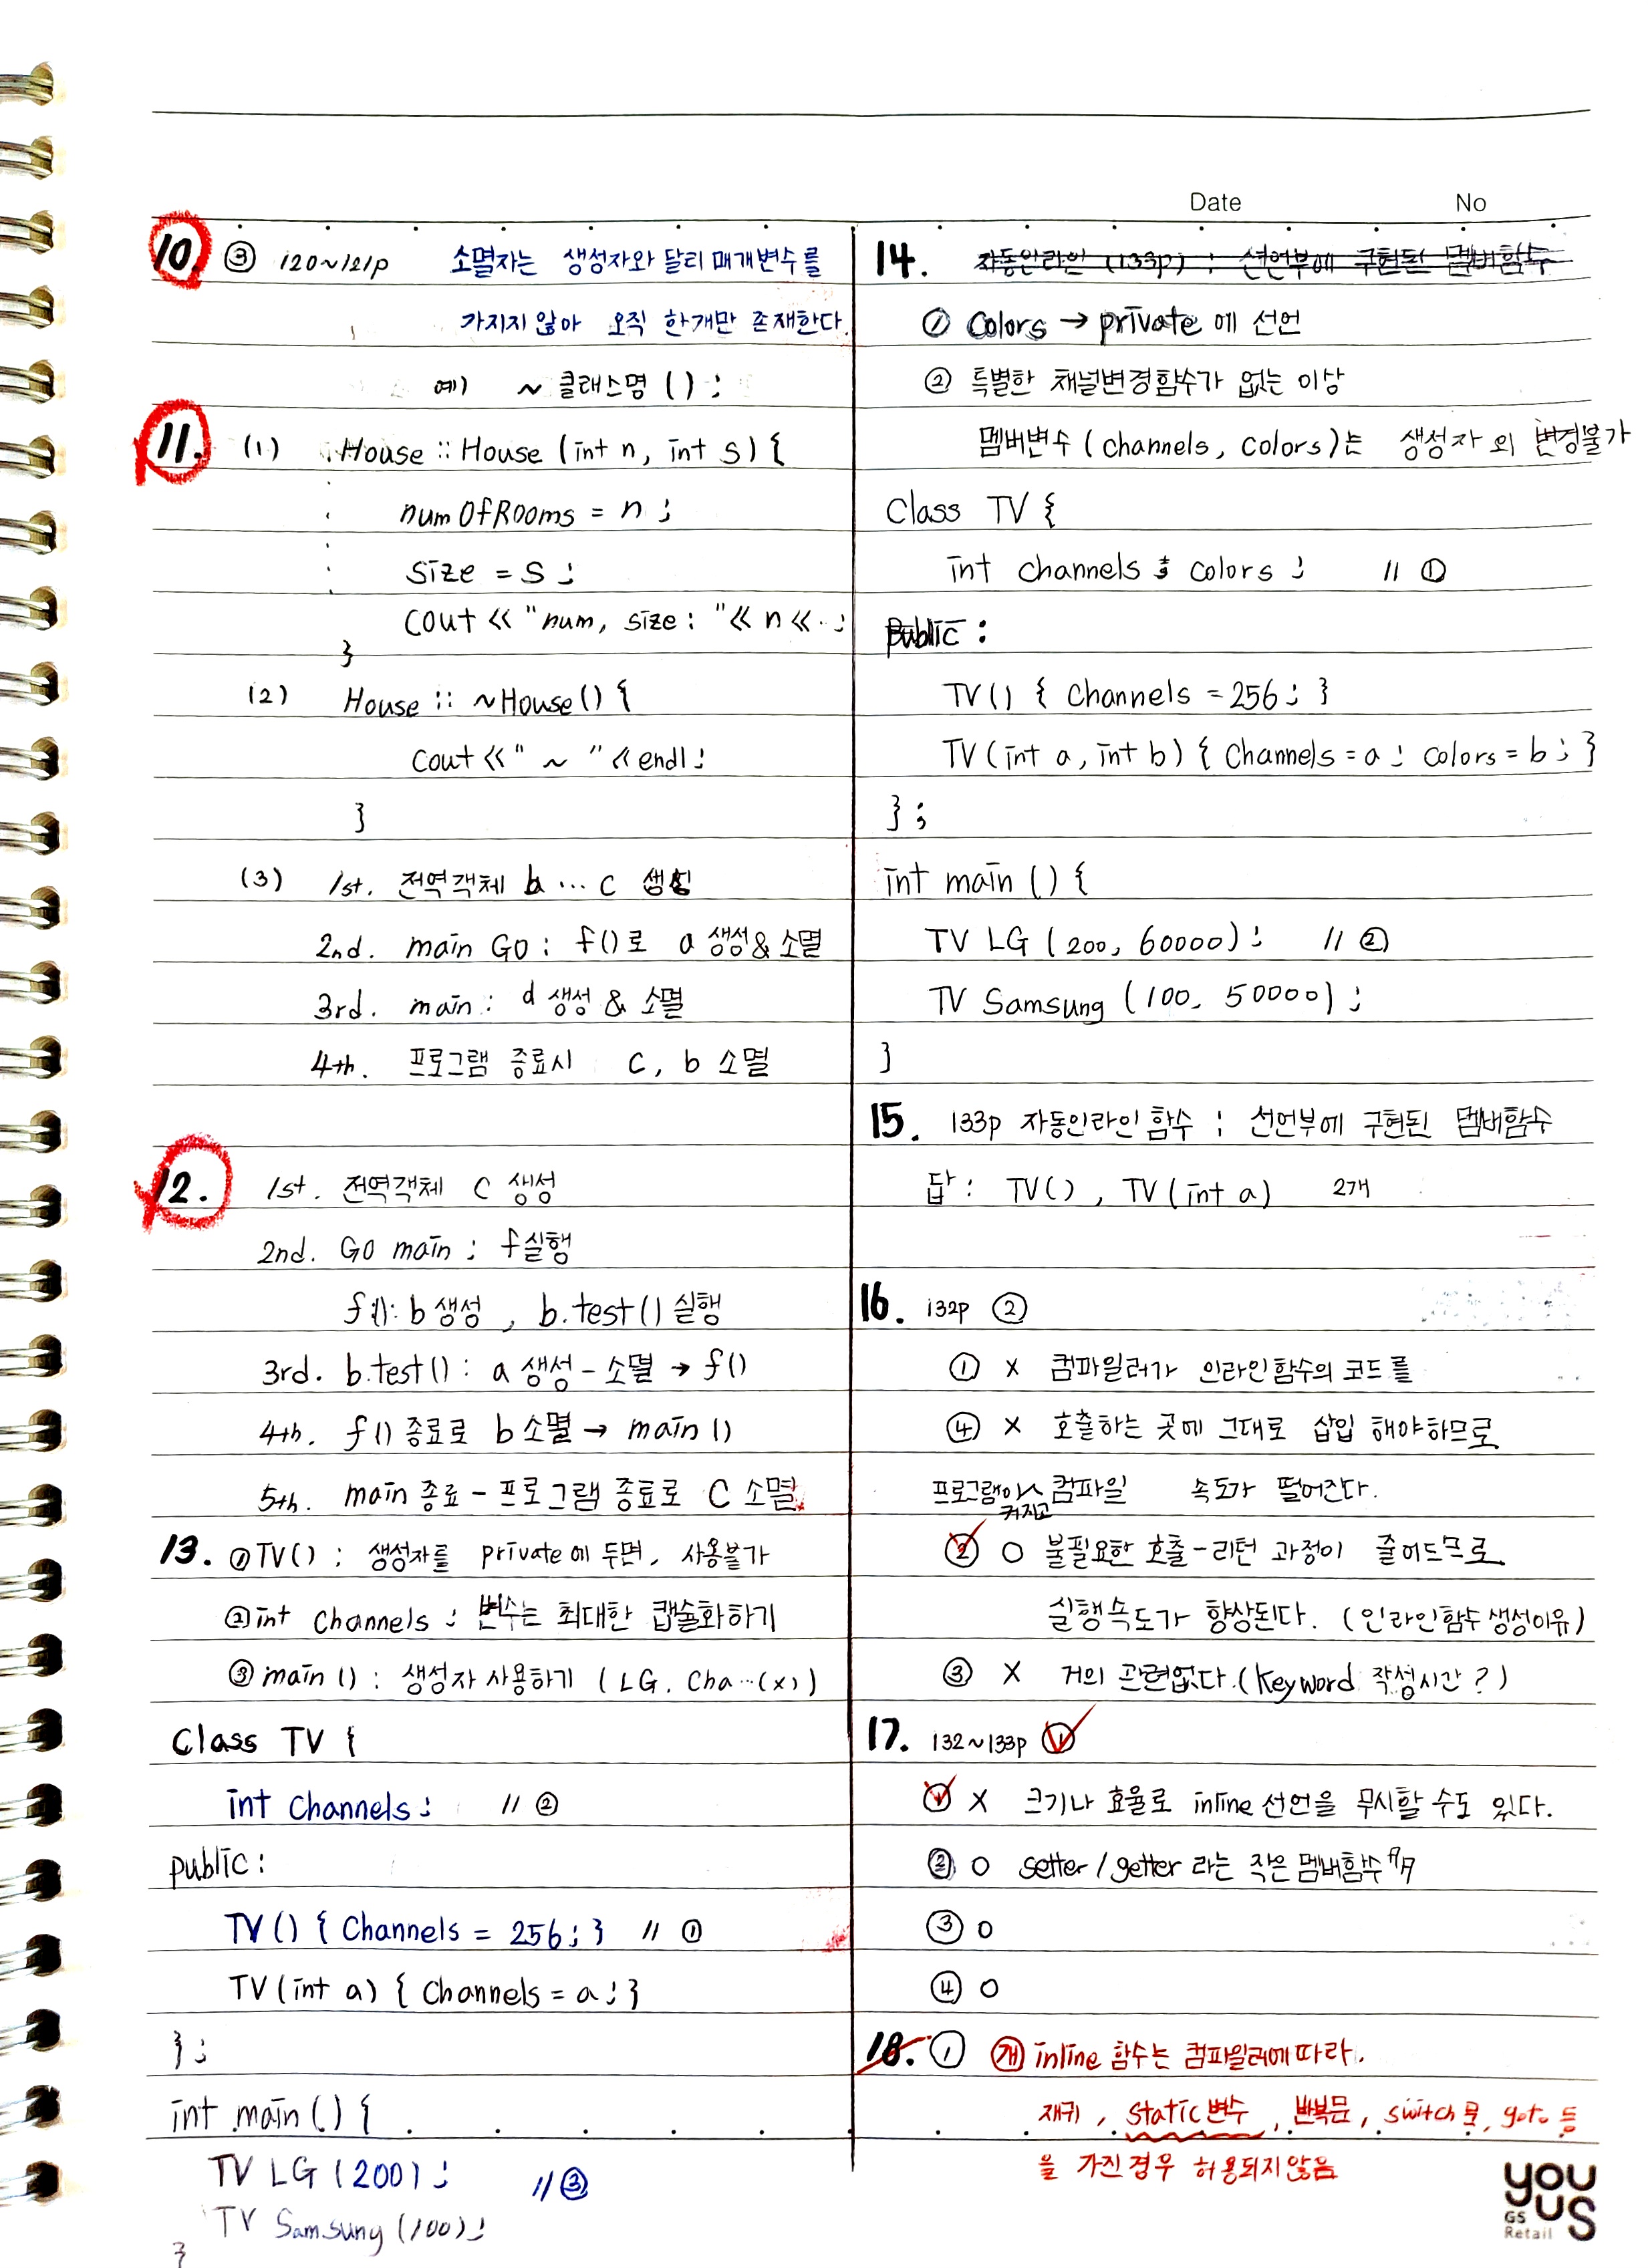 Date No
10. ③ 120~121p 소멸자는 생성자와 달리 매개변수를
가지지 않아 오직 한개만 존재한다.
예) ~클래스명();
11. (1) House::House(int n, int s){
numOfRooms = n;
size = s;
cout << "num, size: "<< n << ..;
}
(2) House::~House(){
cout << " ~ " << endl;
}
(3) 1st. 전역객체 b … c 생성
2nd. main Go: f()로 a 생성 & 소멸
3rd. main: d 생성 & 소멸
4th. 프로그램 종료시 c, b 소멸
12. 1st. 전역객체 C 생성
2nd. Go main; f실행
f(): b 생성, b.test() 실행
3rd. b.test(): a 생성 - 소멸 → f()
4th. f() 종료로 b 소멸 → main()
5th. main 종료 - 프로그램 종료로 C 소멸.
13. ① TV(): 생성자를 private에 두면, 사용불가
② int channels: 변수는 최대한 캡슐화하기
③ main(): 생성자 사용하기 (LG. Cha…(x))
Class TV {
int channels; // ②
public:
TV() { Channels = 256; } // ①
TV(int a) { Channels = a; }
};
int main() {
TV LG (200); // ③
TV Samsung (100);
}
14. 자동인라인 (133p) : 선언부에 구현된 멤버함수
① Colors → private에 선언
② 특별한 채널변경함수가 없는 이상
멤버변수 (channels, colors)는 생성자 외 변경불가
Class TV {
int channels, colors; // ①
public:
TV() { Channels = 256; }
TV(int a, int b) { Channels = a; colors = b; }
};
int main() {
TV LG (200, 60000); // ②
TV Samsung (100, 50000);
}
15. 133p 자동인라인 함수 : 선언부에 구현된 멤버함수
답: TV(), TV(int a) 2개
16. 132p ②
① X 컴파일러가 인라인함수의 코드를
④ X 호출하는 곳에 그대로 삽입 해야하므로
프로그램이 커지고 컴파일 속도가 떨어진다.
② O 불필요한 호출-리턴 과정이 줄어드므로
실행속도가 향상된다. (인라인함수 생성이유)
③ X 거의 관련없다. (Keyword 작성시간?)
17. 132~133p ①
① X 크기나 효율로 inline 선언을 무시할 수도 있다.
② O setter/getter 라는 작은 멤버함수
③ O
④ O
18. ① 개 inline 함수는 컴파일러에 따라.
재귀, static변수, 반복문, switch문, goto 등
을 가진경우 허용되지않음
you
us
GS
Retail